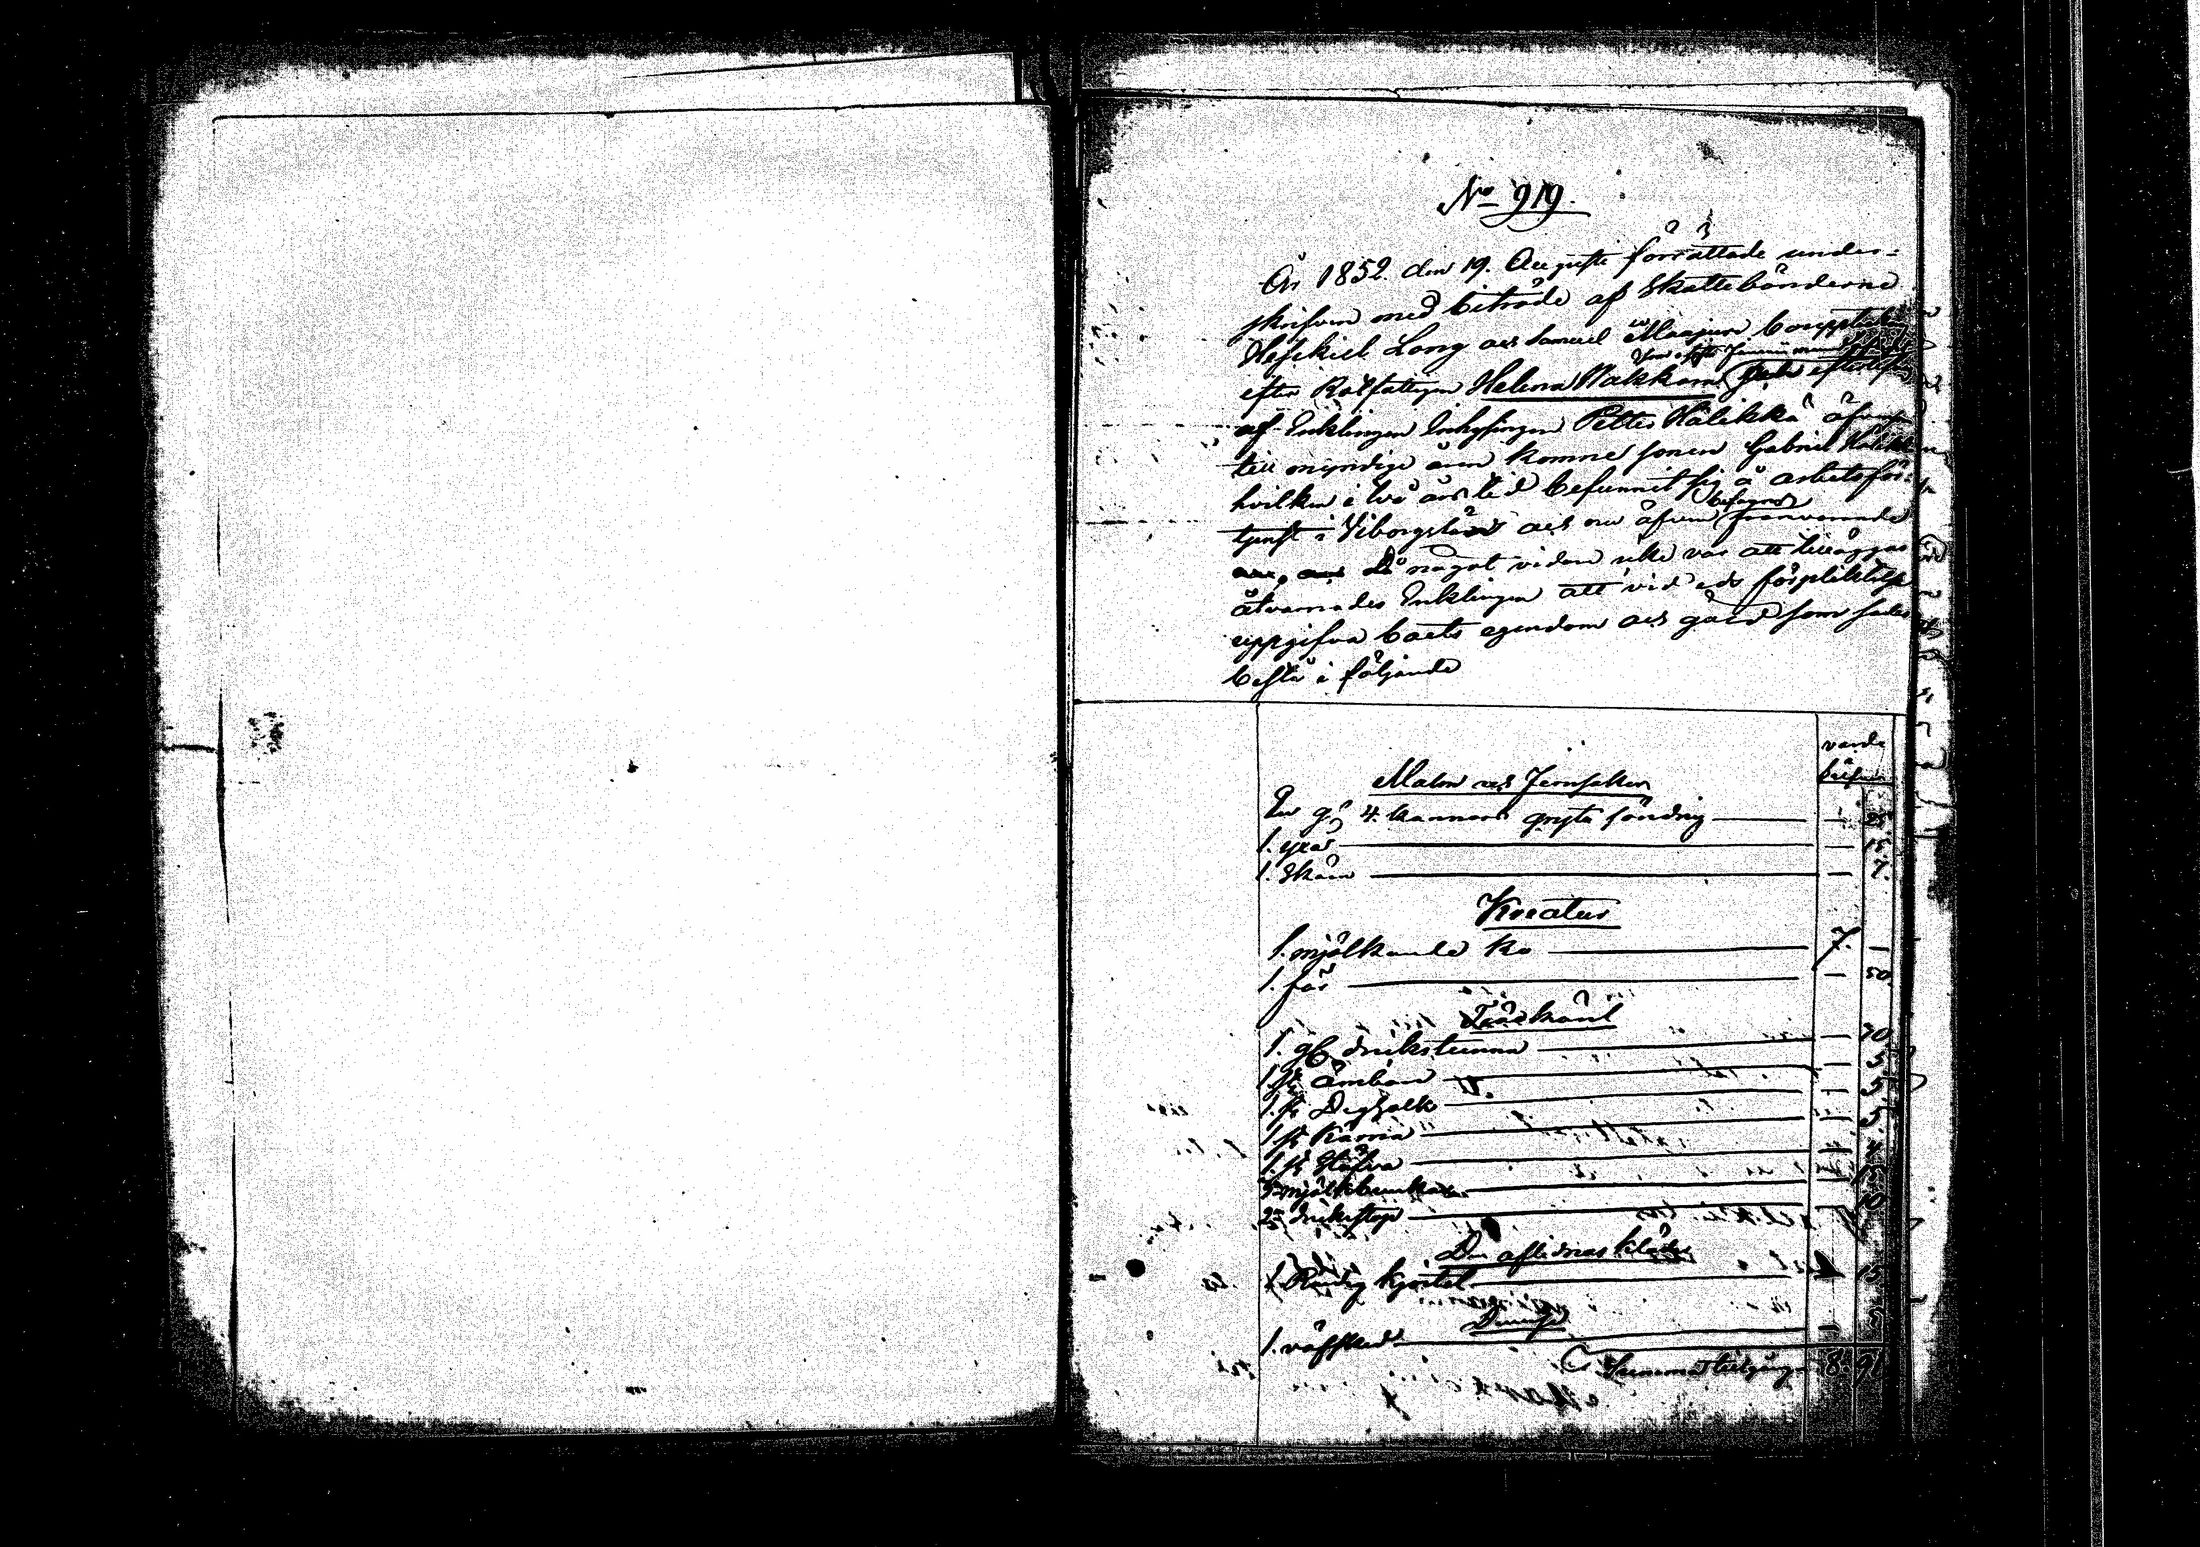 No 919.
År 1852 den 19. Augusti förrättade under-
skrifven med biträde af Skattebönderne
Heskiel Long och Samuel Marjun bouppteckning
efter Rotfattigen Helena Makkon efterlefves
af Enklingen Inhysingen Petter Hälikkä äfvensom
till myndige åren komne sonen Gabriel
hvilken i två års tid befunnit sig å arbetsför-
tjenst i Viborgslän och nu äfven frånvarande
Då något vidare icke var att tillägga
åtvarnades Enklingen att vid eds förpliktelse
uppgifva boets egendom och gäld som sades
bestå i följande
värde
Malm och Jernsaker
En g: 4. kannors gryta söndrig — 25
1. yxa — 15
1. Skära — 7.
Kreatur
1. mjölkande ko 7. —
1. får — 50
Trädkäril
1. gl drickstunna — 20
1. st ämbar — 5
1. st Degtalk — 5
1. st Kärna — 5
1. st Stäfva — 4
mjölkbunkar — 15
2 drickstop — 10
Den aflidnas kläder
1. Randig kjortel — 15
Diverse
1. väfsked — 5
Summa tillgångar 8. 91